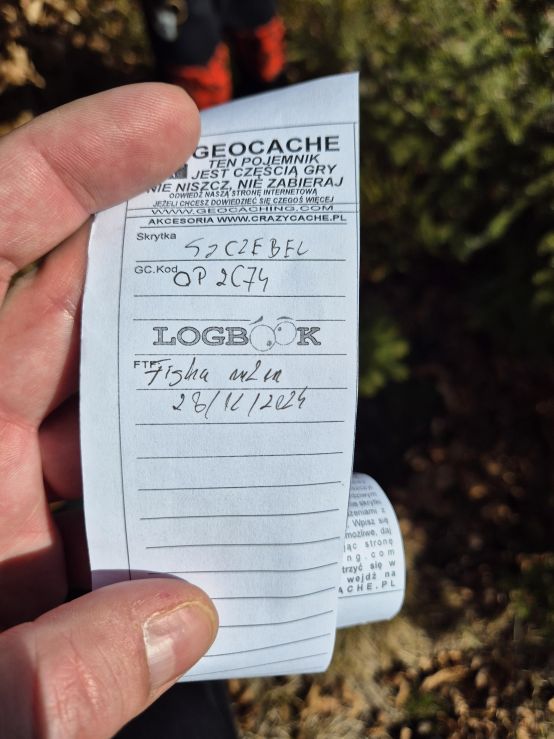 GEOCACHE
TEN POJEMNIK
JEST CZĘŚCIĄ GRY
NIE NISZCZ, NIE ZABIERAJ
ODWIEDŹ NASZĄ STRONĘ INTERNETOWĄ
JEŻELI CHCESZ DOWIEDZIEĆ SIĘ CZEGOŚ WIĘCEJ
WWW.GEOCACHING.COM
AKCESORIA WWW.CRAZYCACHE.PL
Skrytka SZCZEBEL
GC.Kod OP2C74
LOGBOOK
FTF:
28/12/2024
żeniami z
. Wpisz się
możliwe, daj
jąc stronę
ng.com
trzyć się w
wejdź na
ACHE.PL